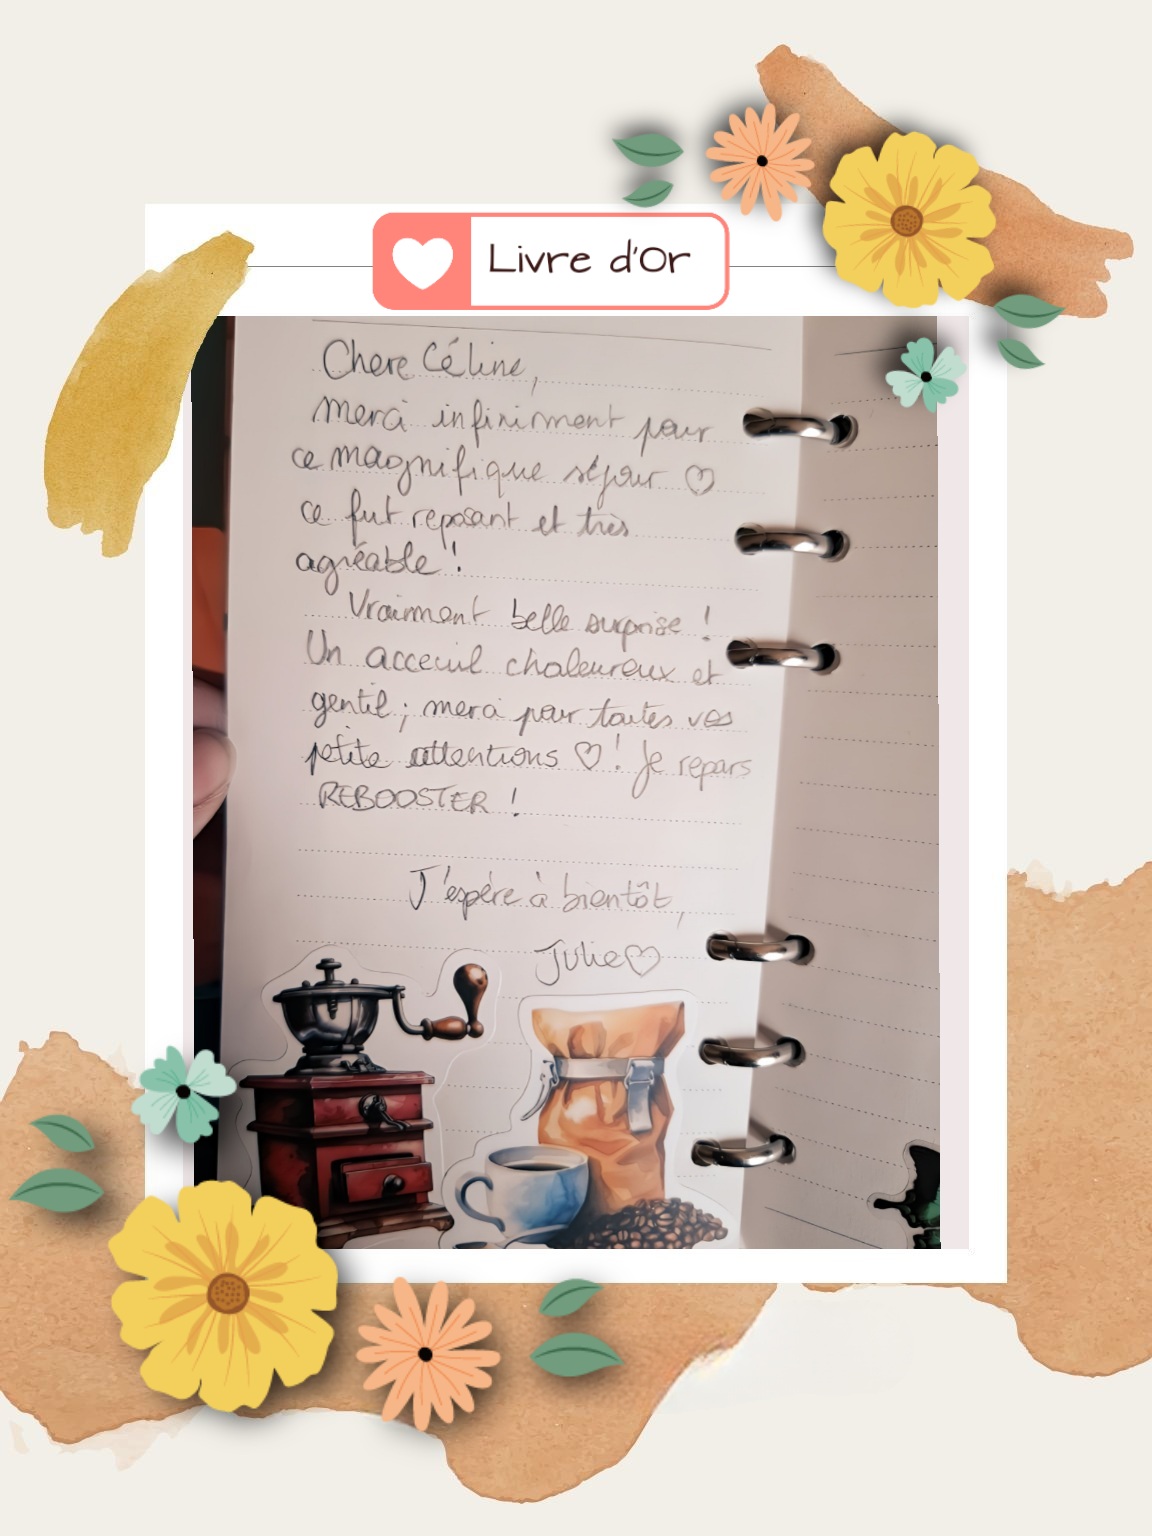 Livre d'Or
Chere Céline,
merci infiniment pour
ce magnifique séjour ♡
ce fut reposant et très
agréable !
Vraiment belle surprise !
Un acceuil chaleureux et
gentil ; merci pour toutes vos
petite attentions ♡ ! Je repars
REBOOSTER !
J'espére à bientôt,
Julie ♡